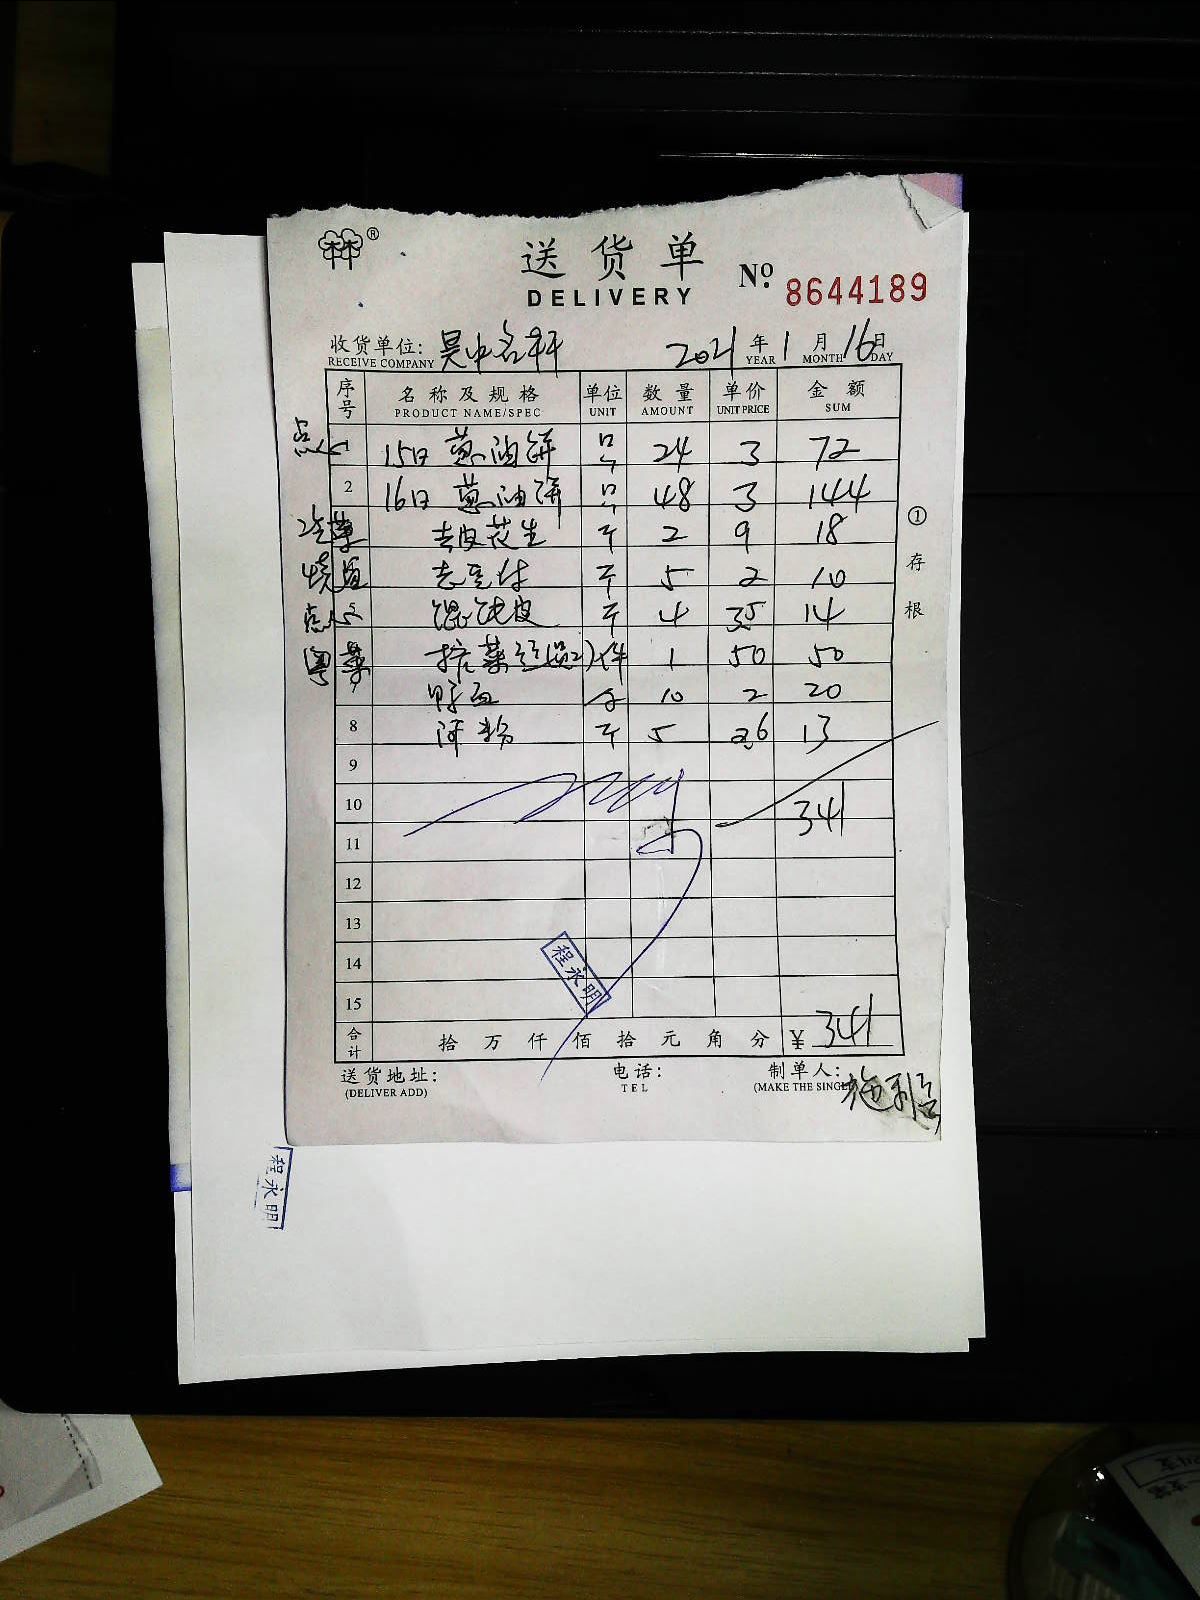 林 ®
送货单
DELIVERY
No. 8644189
收货单位: 吴中名轩 2021年1月16日
RECEIVE COMPANY YEAR MONTH DAY
序号 名称及规格 单位 数量 单价 金额
PRODUCT NAME/SPEC UNIT AMOUNT UNIT PRICE SUM
点心 1 15日 葱油饼 只 24 3 72
2 16日 葱油饼 只 48 3 144
冷菜 去皮花生 斤 2 9 18
5 2 10
点心 5 馄饨皮 斤 4 3.5 14
粤菜 件 1 50 50
7 鸭血 10 2 20
8 河粉 斤 5 2.6 13
9
10 341
11
12
13
14
15
程永明
合计 拾万仟佰拾元角分 ¥ 341
送货地址: 电话: 制单人:
(DELIVER ADD) TEL (MAKE THE SINGLE
①存根
程永明